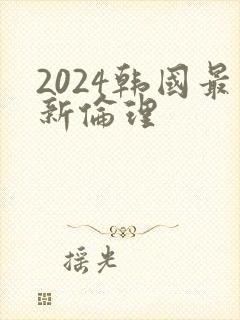 2024韩国最
新倫理
摇光